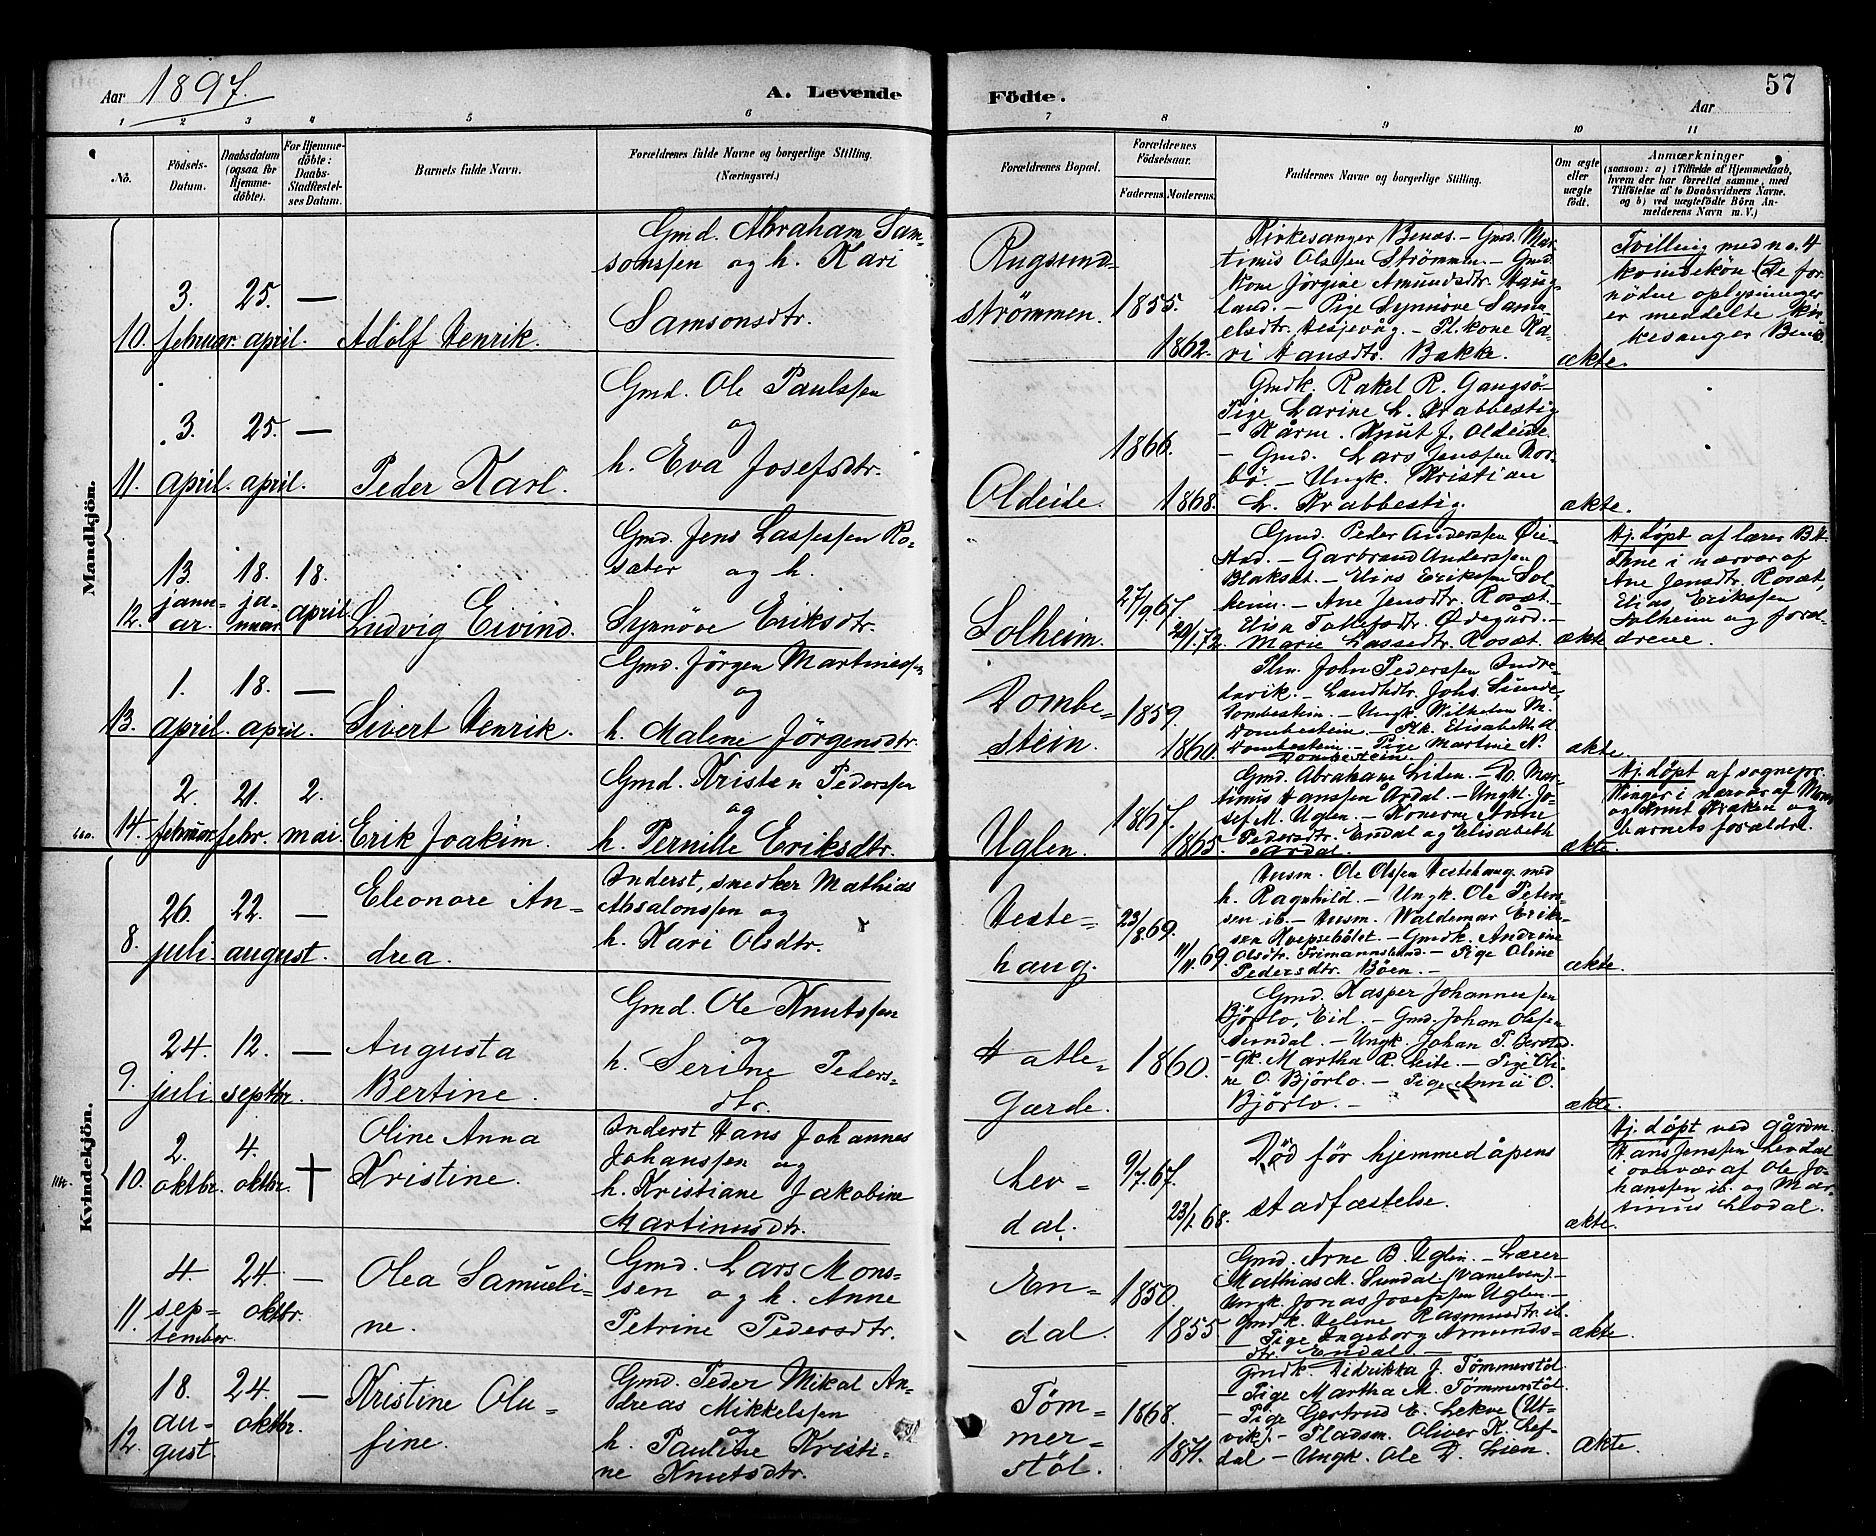 Aar 1897.
A. Levende Födte.
Aar
57
1 2 3 4 5 6 7 8 9 10 11
No.
Födsels-
Datum.
Daabsdatum
(ogsaa for
Hjemme-
döbte).
For Hjemme-
döbte:
Daabs-
Stadfæstel-
ses Datum.
Barnets fulde Navn.
Forældrenes fulde Navne og borgerlige Stilling.
(Næringsvei.)
Forældrenes Bopæl.
Forældrenes
Födselsaar.
Faderens. Moderens.
Faddernes Navne og borgerlige Stilling.
Om ægte
eller
uægte
födt.
Anmærkninger
(saasom: a) i Tilfælde af Hjemmedaab,
hvem der har forrettet samme, med
Tilföielse af to Daabsvidners Navne.
og b) ved uægtefödte Börn An-
melderens Navn m. V.)
Mandkjön.
10.
3.
februar.
25.
april.
—
Adolf Henrik.
Gmd. Abraham Sam-
somssen og h. Kari
Samsonsdtr.
Rugsund-
strømmen.
1855.
1862.
Kirkesanger Benæs. — Gmd. Mar-
timus Olssen Strømmen. — Gmd.
Kone Jörgine Amundsdtr. Haug-
land. — Pige Synnöve Samu-
elsdtr. Hesjevåg. — Pl.kone Ka-
ri Hansdtr. Bakke.
ækte.
Tvilling med no. 4
kvindekön (De for-
nödne oplysninger
er meddelte kir-
kesanger Benæs.
11.
3.
april.
25.
april.
—
Peder Karl.
Gmd. Ole Paulssen
og
h. Eva Josefsdtr.
Oldeide.
1866.
1868.
Gmdk. Rakel R. Gangsö.
Pige Larine L. Krabbestig
— Kårm. Knut J. Oldeide.
— Gmd. Lars Jenssen Nor-
bö. — Ungk. Kristian
L. Krabbestig.
ækte.
12.
13.
janu-
ar.
18.
ja-
nuar.
18.
april.
Ludvig Eivind.
Gmd. Jens Lassessen Ro-
sæter og h.
Synnöve Eriksdtr.
Solheim.
27/9.67.
29/1.72.
Gmd. Peder Anderssen Öie-
stad. — Garbrand Anderssen
Blakset. — Elias Erikssen Sol-
heim. — Ane Jensdtr. Rosæt.
Elisa Ødegård. —
Marie Lassedtr. Rosæt.
ækte
Hj. döpt af lærer B.H.
Thne i nærvær af
Ane Jensdtr. Rosæt,
Elias Erikssen
Solheim og foræl-
drene.
13.
1.
april.
18.
april.
—
Sivert Henrik.
Gmd. Jörgen Martinussen
og
h. Malene Jörgensdtr.
Dombe-
stein.
1859.
1860.
John Pederssen Indre-
havik. — Landhdtr. Johs. Sunde,
Dombestein. — Ungk. Wilhelm M.
Dombestein. — Elisabeth A.
Dombestein. — Pige Martine N.
Dombestein.
ækte.
14.
2.
februar.
21.
febr.
2.
mai.
Erik Joakim.
Gmd. Kristen Pederssen
og
h. Pernille Eriksdtr.
Uglen.
1867.
1865.
Gmd. Abraham Liden. — Mar-
timus Hanssen Årdal. — Ungk. Jo-
sef M. Uglen. — Konerne Anne
Pedersdtr. Endal og Elisabeth
Årdal.
ækte.
Hj. döpt af sognepr.
Kinger i nærvær af
og Knut Kraken og
barnets forældre.
Kvindekjön.
8.
26.
juli.
22.
august.
—
Eleonore An-
drea.
Inderst, snedker Mathias
Absalonssen og
h. Kari Olsdtr.
Heste-
haug.
23/8.69.
11/11.69.
Husm. Ole Olssen Hestehaug med
h. Ragnhild. — Ungk. Ole Peters-
sen ib. — Husm. Waldemar Erik-
sen Kvepsebölet. — Gmdk. Andrine
Olsdtr. Frimannslund. — Pige Oline
Pedersdtr. Böen. —
ækte.
9.
24.
juli.
12.
septbr.
—
Augusta
Bertine.
Gmd. Ole Knutssen
og
h. Serine Peders-
dtr.
Hatle-
Gærde.
1860.
Gmd. Kasper Johannessen
Bjørlo, Eid. — Gmd. Johan Olssen
— Ungk. Johan P.
— Gk. Martha R. Leite. — Pige Oli-
ne O. Bjørlo. — Pige Anna O.
Bjørlo. —
ækte.
10.
2.
oktbr.
4.
oktbr.
†
Oline Anna
Kristine.
Inderst Hans Johannes
Johanssen og
h. Kristiane Jakobine
Martinusdtr.
Lev-
dal.
9/7.67.
23/1.68.
Död för hjemmedåpens
stadfæstelse.
ækte.
Hj. döpt ved gårdm.
Hans Jenssen Levdal
i overvær af Ole Jo-
hanssen ib. og Mar-
timus Levdal.
11.
4.
sep-
tember.
24.
oktbr.
—
Olea Samueli-
ne.
Gmd. Lars Mons-
sen og h. Anne
Petrine Pedersdtr.
En-
dal.
1850.
1855.
Gmd. Arne B. Uglen. — Lærer
Mathias M. Sundal (Vanelven). —
Ungk. Jonas Josefssen Uglen. —
Gmdk. Heline Rasmusdtr. ib.
— Pige Ingeborg Amunds-
dtr. Endal. —
ækte.
12.
18.
au-
gust.
24.
oktbr.
—
Kristine Olu-
fine.
Gmd. Peder Mikal An-
dreas Mikkelssen
og
h. Pauline Kristi-
ne Knutsdtr.
Töm-
mer-
stöl.
1868.
1871.
Gmdk. Didrikka J. Tömmerstöl.
— Pige Martha M. Tömmerstöl.
— Pige Gertrud E. Lekve (Ut-
vik). — Pladsm. Oliver K. Lef-
dal — Ungk. Ole D. Lien.
ækte.